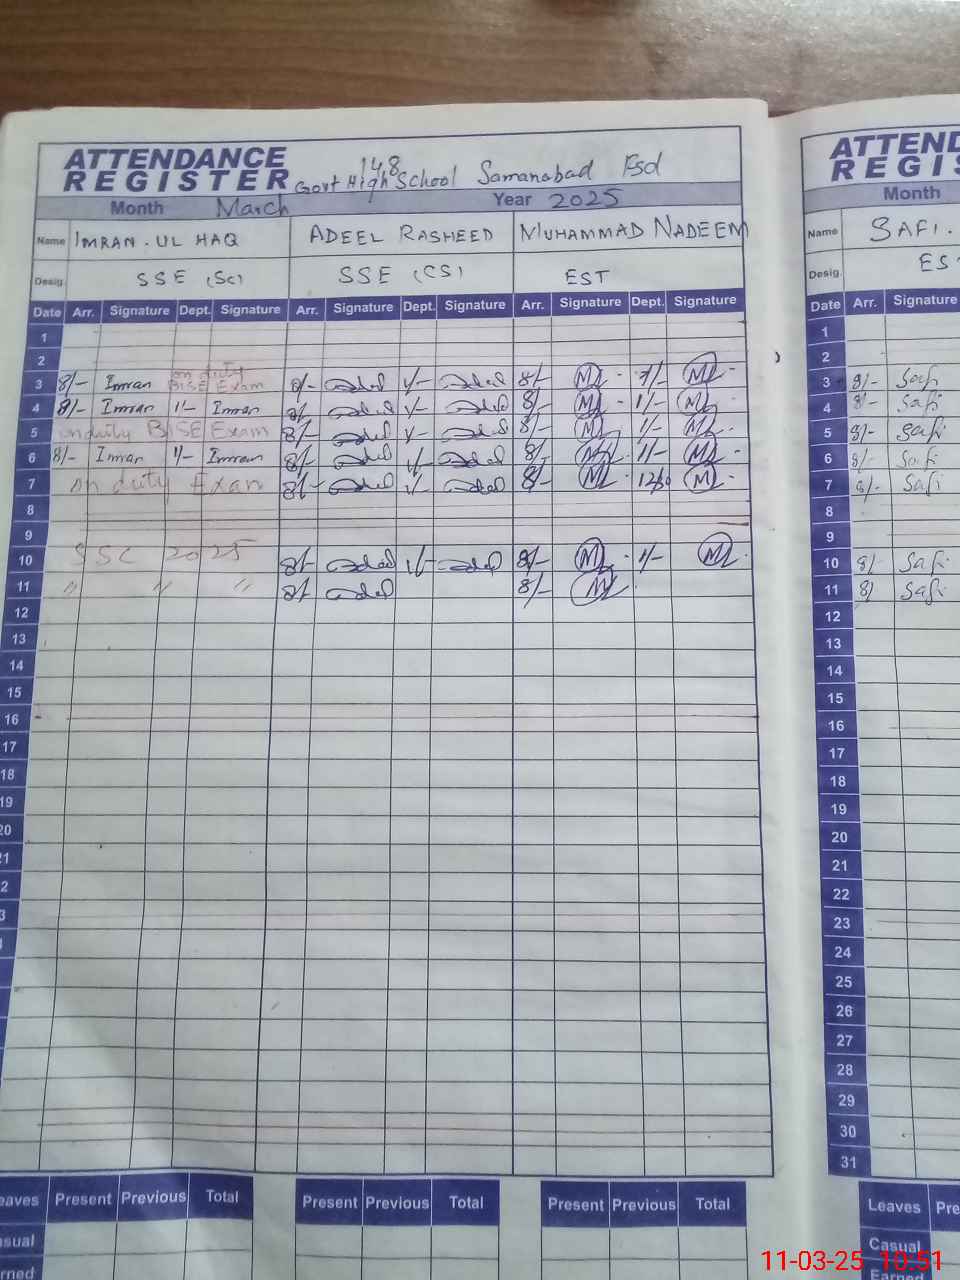 ATTENDANCE REGISTER
148
Govt High School Samanabad Fsd
Month March Year 2025
Name IMRAN.UL HAQ ADEEL RASHEED MUHAMMAD NADEEM
Desig. SSE (Sc) SSE (CS) EST
Date Arr. Signature Dept. Signature Arr. Signature Dept. Signature Arr. Signature Dept. Signature
1
2
on duty
3 8/- Imran BISE Exam 8/- Adeel 1/- Adeel 8/- 1/-
4 8/- Imran 1/- Imran 8/- Adeel 1/- Adeel 8/- 1/-
5 on duty BISE Exam 8/- Adeel 1/- Adeel 8/- 1/-
6 8/- Imran 1/- Imran 8/- Adeel 1/- Adeel 8/- 1/-
7 on duty Exam 8/- Adeel 1/- Adeel 8/-
8
9
10 SSC 2025 8/- Adeel 1/- Adeel 8/- 1/-
11 〃 〃 〃 8/- Adeel 8/-
12
13
14
15
16
17
18
19
20
21
2
3
Leaves Present Previous Total Present Previous Total Present Previous Total
ATTEND
REGIS
Month
Name SAFI.
Desig. ES
Date Arr. Signature
1
2
3 8/- Safi
4 8/- Safi
5 8/- Safi
6 8/- Safi
7 8/- Safi
8
9
10 8/- Safi
11 8/ Safi
12
13
14
15
16
17
18
19
20
21
22
23
24
25
26
27
28
29
30
31
Leaves Pre
Casual
Earned
11-03-25 10:51